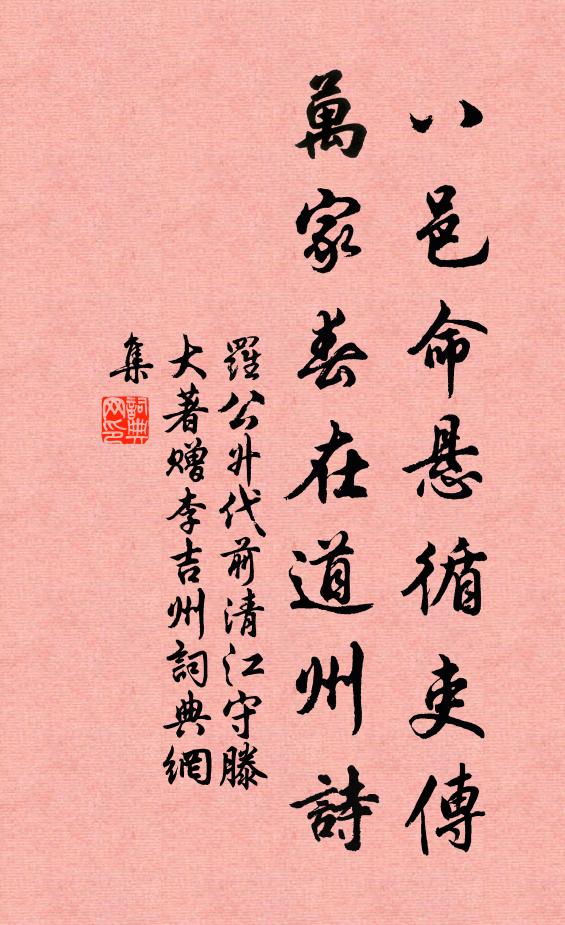 八邑命悬循吏傳
萬家春在道州詩
羅公升代前清江守滕
大著赠李吉州詞典網
集
詞典
网印